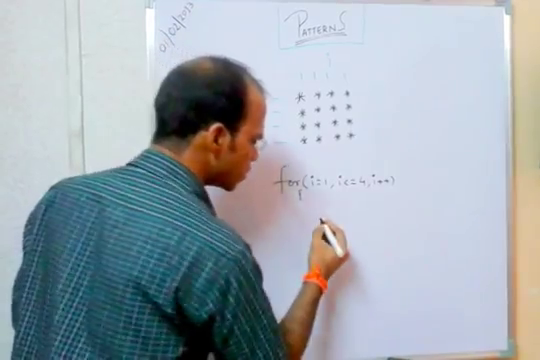 01/02/2013
PATTERNS
* * * *
* * * *
* * * *
* * * *
for(i=1, i<=4, i++)
{